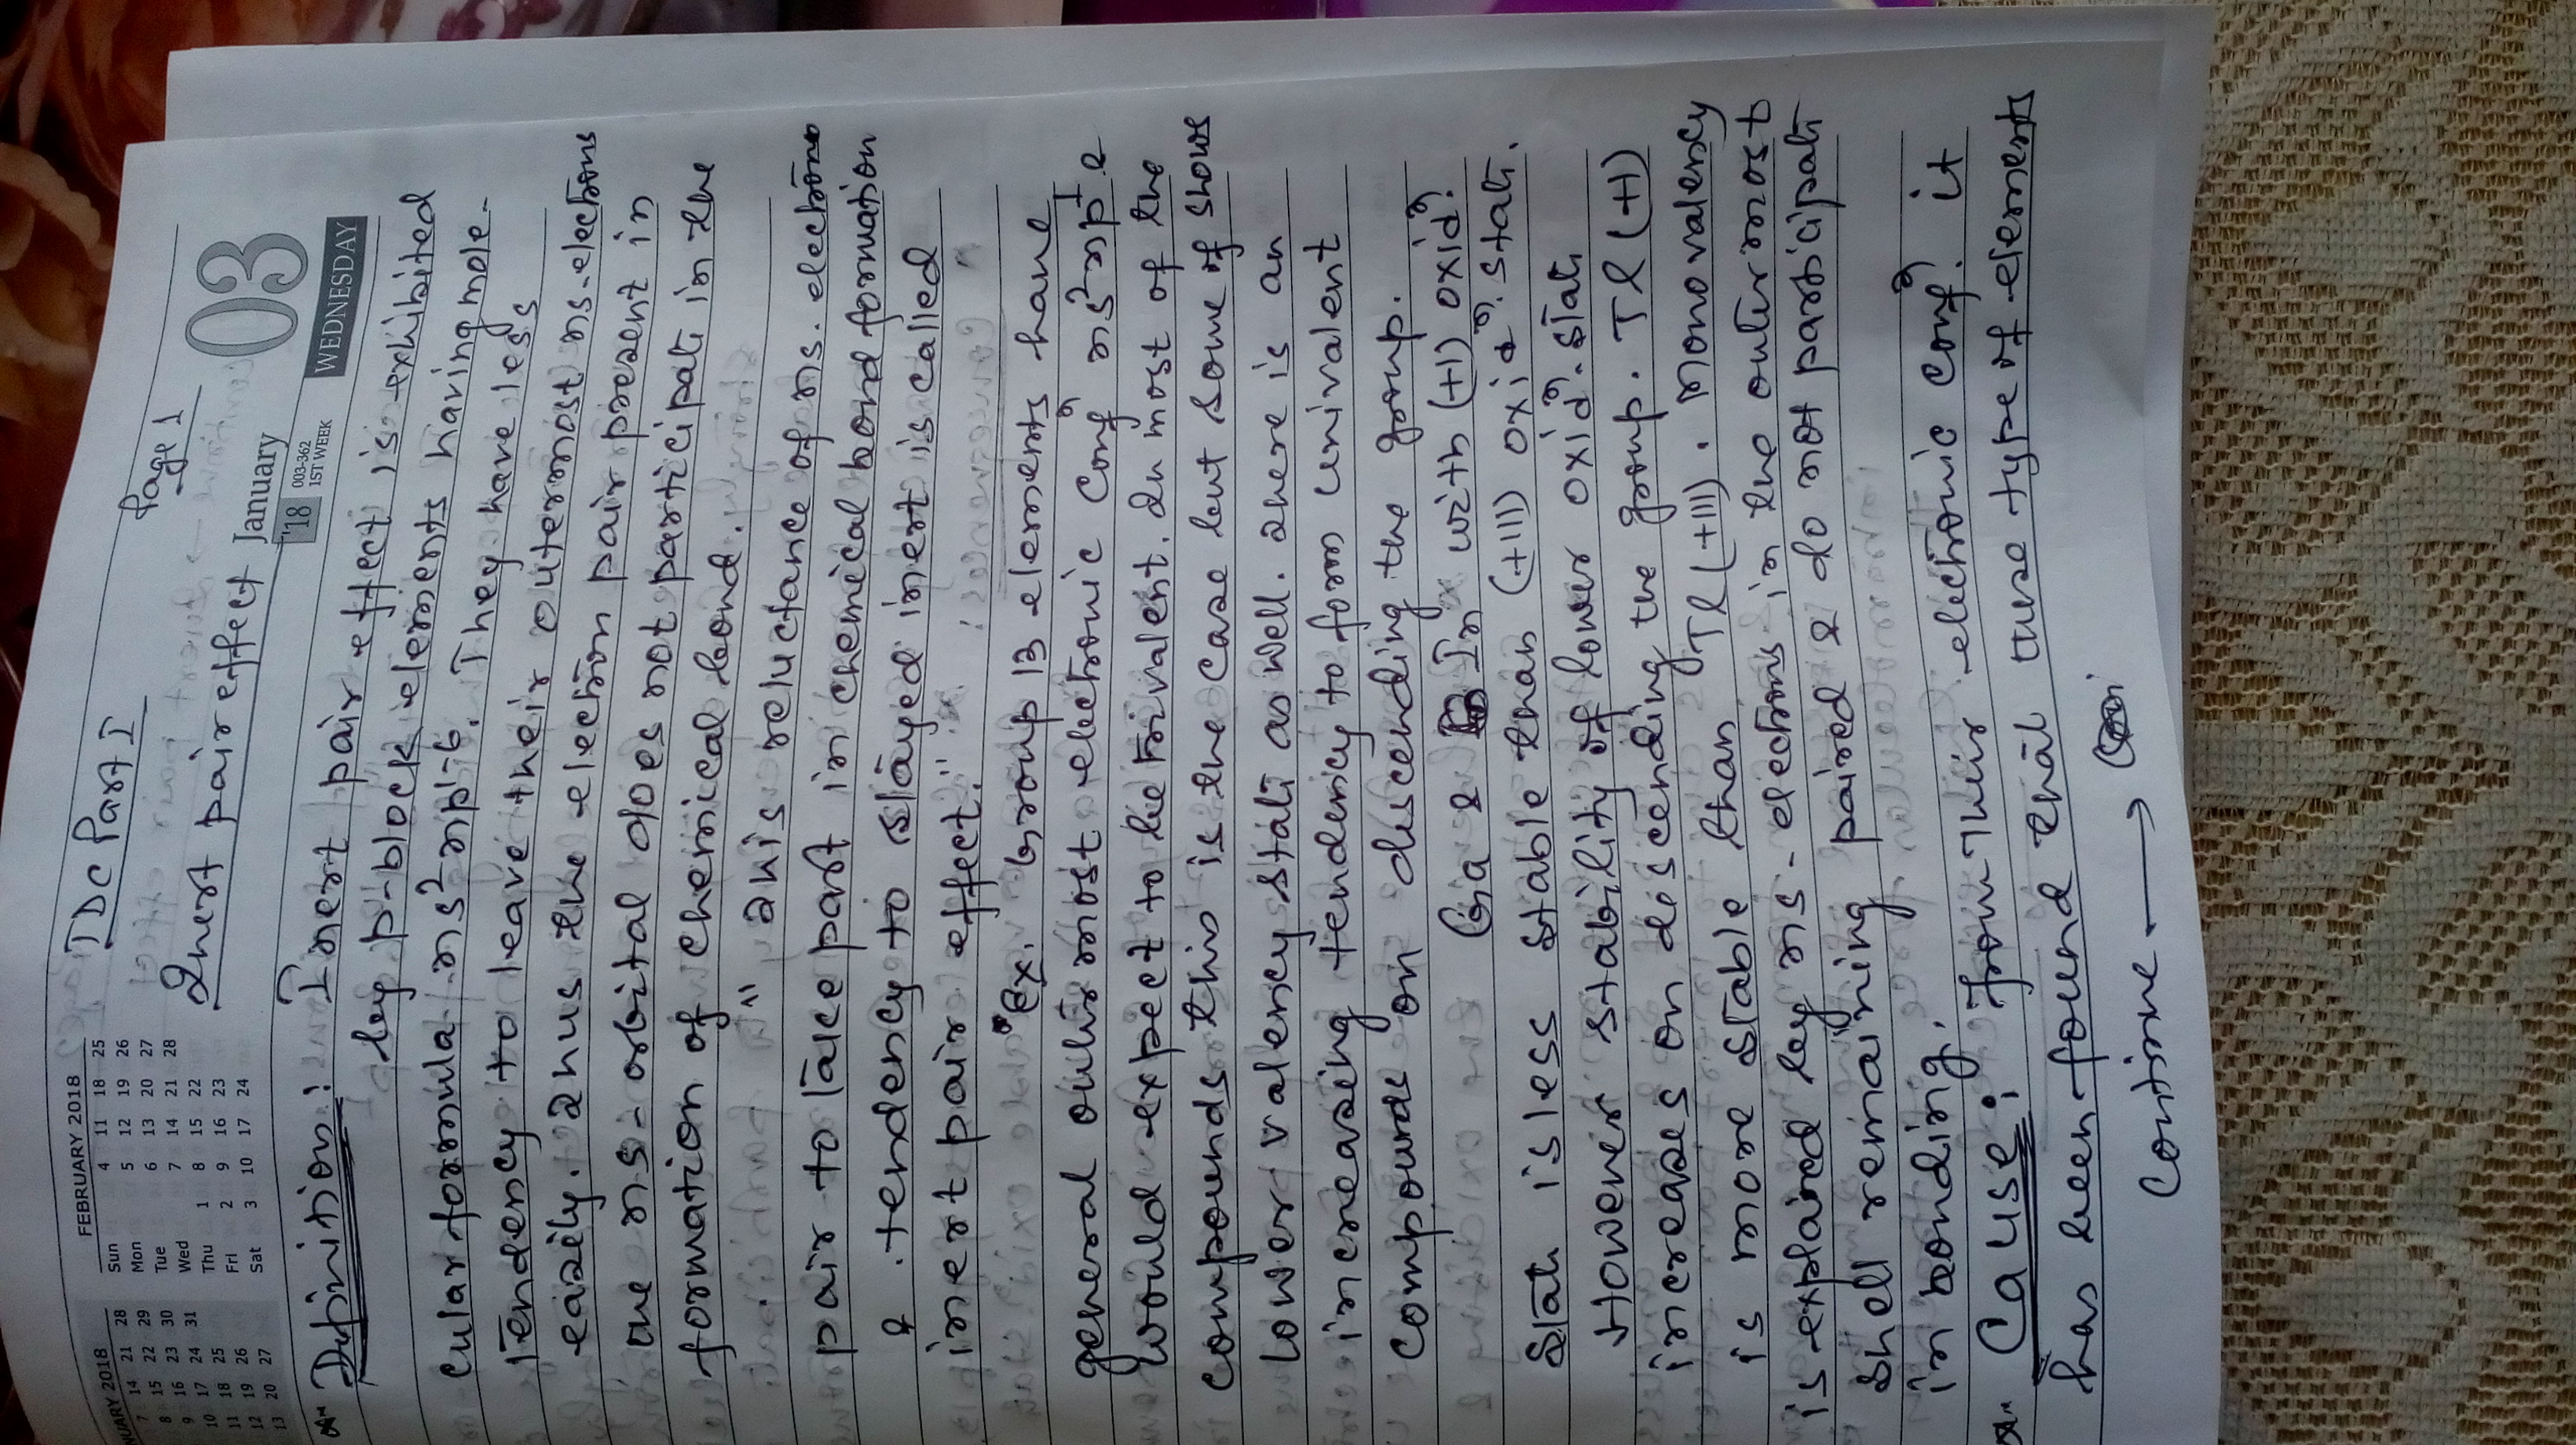 TDC Part I
Page 1
Inert pair effect
January
'18
003-362
1ST WEEK
03
WEDNESDAY
NUARY 2018
7 14 21 28
8 15 22 29
9 16 23 30
10 17 24 31
11 18 25
12 19 26
13 20 27
FEBRUARY 2018
Sun 4 11 18 25
Mon 5 12 19 26
Tue 6 13 20 27
Wed 7 14 21 28
Thu 1 8 15 22
Fri 2 9 16 23
Sat 3 10 17 24
Definition: Inert pair effect is exhibited
by p-block elements having mole-
cular formula ns² np¹⁻⁶. They have less
tendency to leave their outermost ns-electrons
easily. Thus the electron pair present in
the ns-orbital does not participate in the
formation of chemical bond.
"This reluctance of ns. electrons
pair to take part in chemical bond formation
& tendency to stayed inert is called
inert pair effect."
Ex. Group 13 elements have
general outermost electronic confⁿ ns² np¹ &
would expect to be trivalent. In most of the
compounds this is the case but some of shows
lower valency state as well. There is an
increasing tendency to form univalent
compounds on descending the group.
Ga & In with (+1) oxidⁿ.
state is less stable than (+III) oxidⁿ. state.
However stability of lower oxidⁿ. state
increases on descending the group. Tl (+I)
is more stable than Tl (+III). Monovalency
is explained by ns-electrons in the outermost
shell remaining paired & do not participate
in bonding.
Cause: From their electronic confⁿ. it
has been found that these type of elements
Continue →